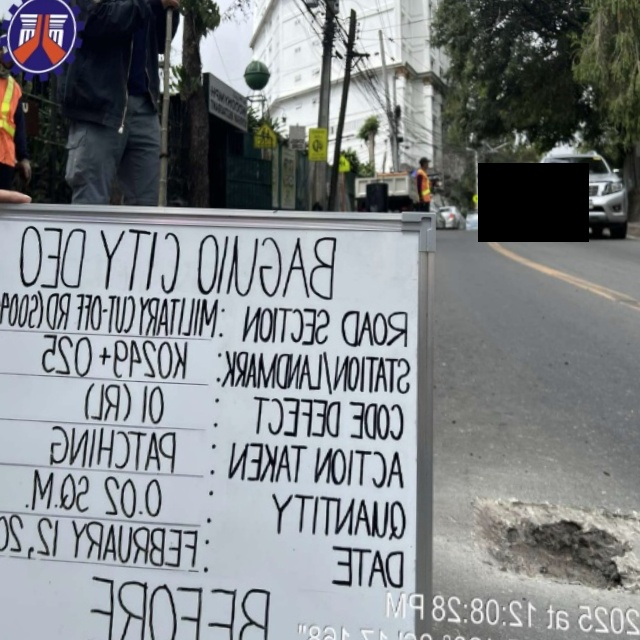 BAGUIO CITY DEO
ROAD SECTION : MILITARY CUT-OFF RD (S00
STATION/LANDMARK : K0249+025
CODE DEFECT : 01 (RL)
ACTION TAKEN : PATCHING
QUANTITY : 0.02 SQ.M.
DATE : FEBRUARY 12, 20
BEFORE
2025 at 12:08:28 PM
17.168"